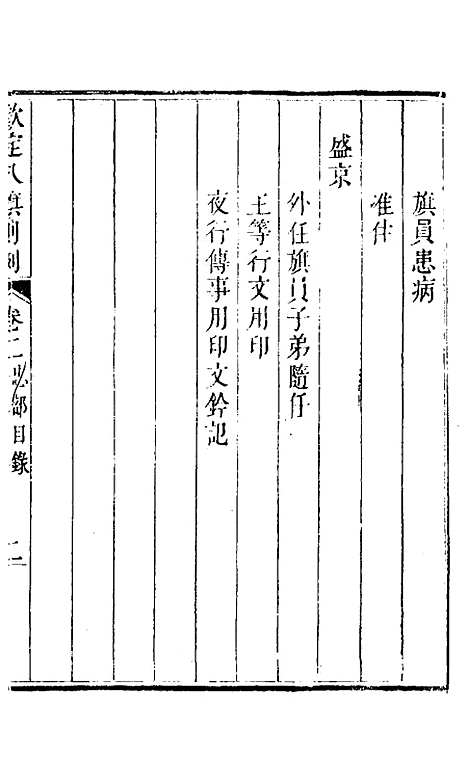 旗員患病
准住
盛京
外任旗員子弟隨任
王等行文用印
夜行傳事用印文鈐記
欽定八旗則例 卷二 忠部目錄 二